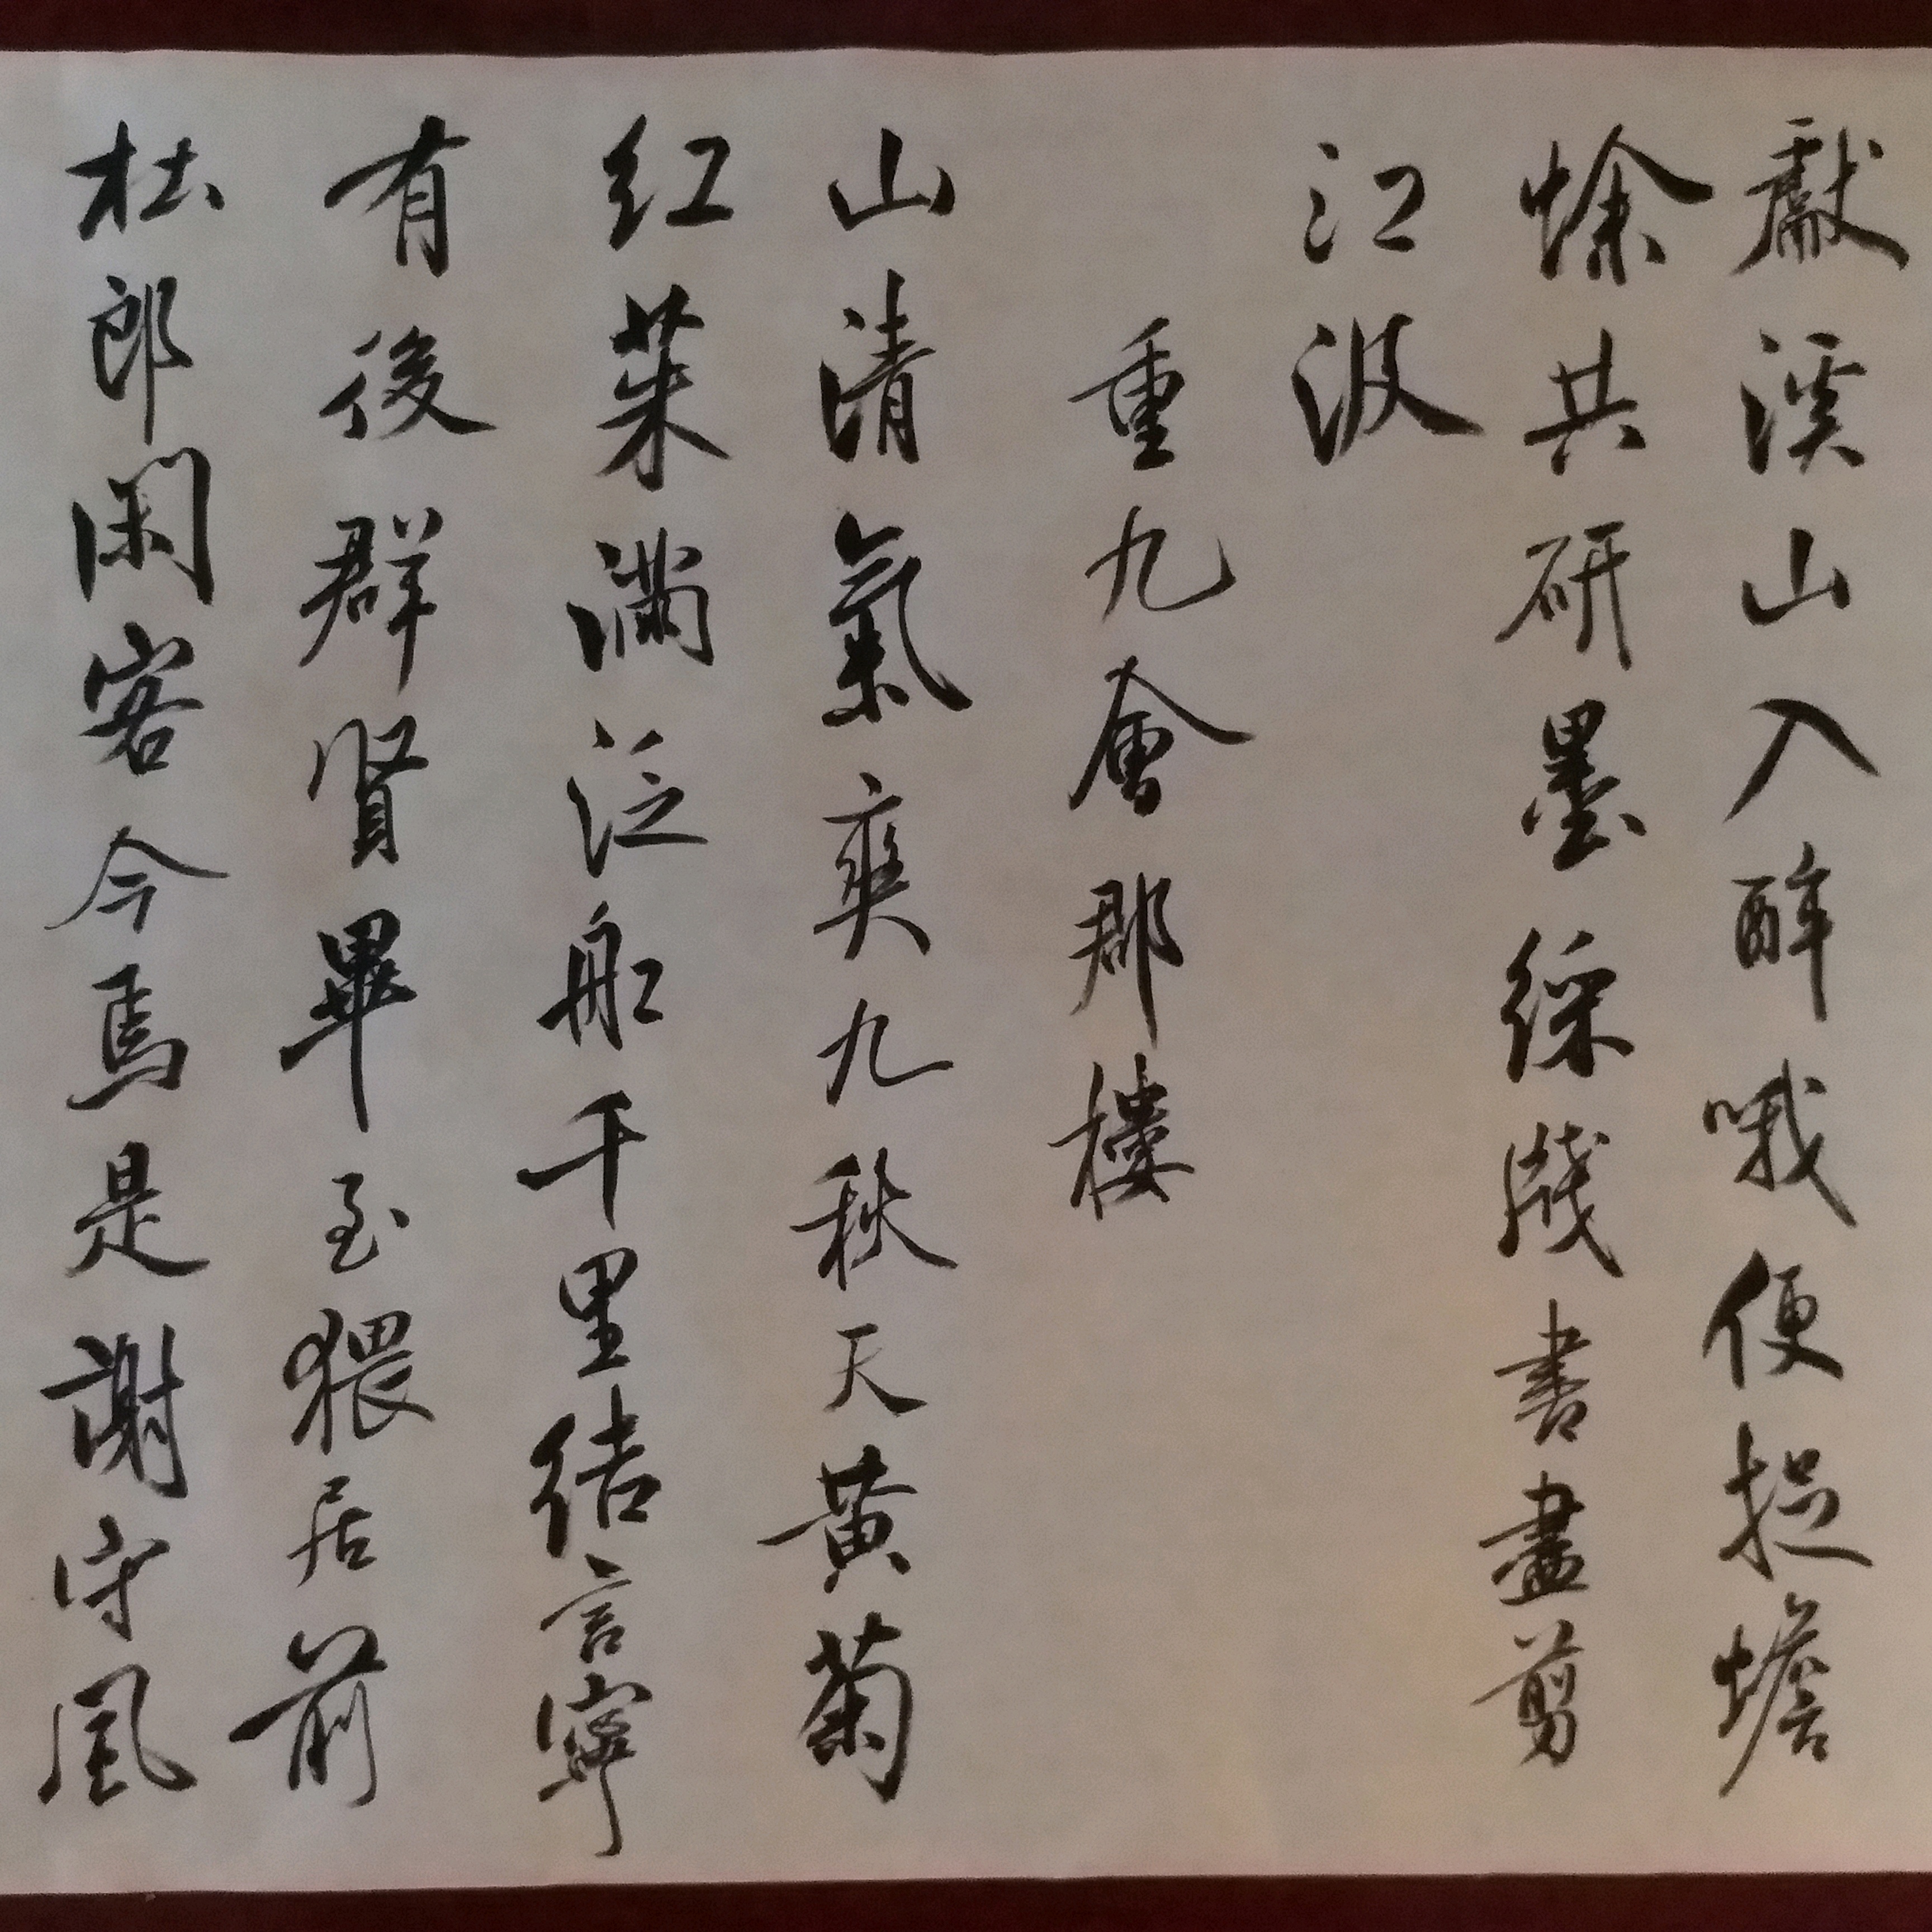 獻溪山入醉哦便捉蟾
蜍共研墨綵牋書盡剪
江波
重九會郡樓
山清氣爽九秋天黄菊
红茱满泛船千里结言寧
有後群賢畢至猥居前
杜郎闲客今焉是謝守風